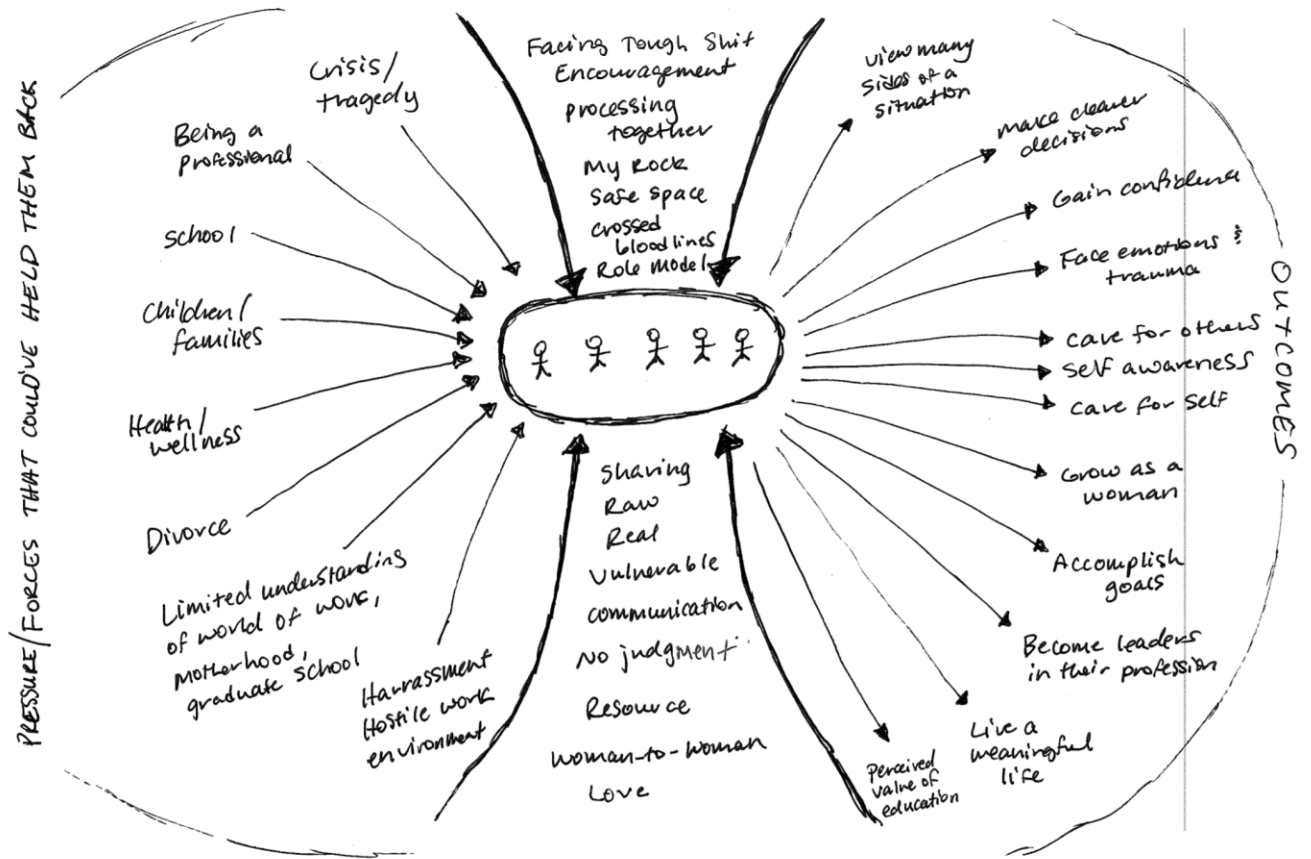 PRESSURE/FORCES THAT COULD'VE HELD THEM BACK
Crisis/
tragedy
Being a
professional
School
Children/
families
Health/
wellness
Divorce
Limited understanding
of world of work,
motherhood,
graduate school
Harrassment
Hostile work
environment
Facing Tough Shit
Encouragement
processing
together
My Rock
Safe space
crossed
bloodlines
Role Model
Sharing
Raw
Real
Vulnerable
communication
No judgment
Resource
Woman-to-Woman
Love
View many
sides of a
situation
make clearer
decisions
Gain confidence
Face emotions &
trauma
Care for others
Self awareness
Care for self
Grow as a
woman
Accomplish
goals
Become leaders
in their profession
Live a
meaningful
life
Perceived
value of
education
OUTCOMES